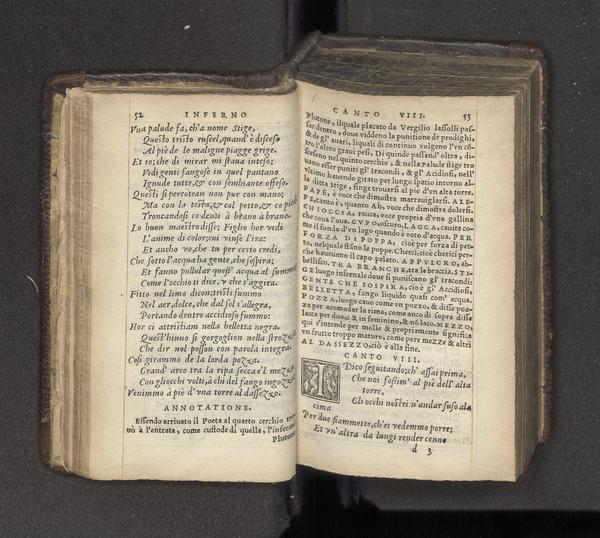 52 INFERNO
Vna palude fa, ch'a nome Stige,
Questo tristo ruscel, quand'è disceso
Al piè de le maligne piagge grige.
Et io; che di mirar mi staua inteso;
Vedi genti fangose in quel pantano
Ignude tutte, & con sembiante offeso.
Questi si percotean non pur con mano;
Ma con la testa, & col petto, & co piedi
Troncandosi co denti à brano à brano.
Lo buon maestro disse; Figlio hor vedi
L'anime di color; cui vinse l'ira:
Et ancho vo, che tu per certo credi,
Che sotto l'acqua ha gente, che sospira;
Et fanno pullular quest' acqua al summo
Come l'occhio ti dice, v che s'aggira.
Fitto nel limo dicon; tristi fummo
Nel aer, dolce, che dal sol s'allegra,
Portando dentro accidioso fummo:
Hor ci attristiam nella belletta negra.
Quest' hinno si gorgoglion nella strozza
Che dir nol posson con parola integra.
Cosi girammo de la lorda pozza
Grand' arco tra la ripa secca e'l mezzo
Con gliocchi volti, à chi del fango ingozza
Venimmo à piè d'vna torre al dassezzo.
ANNOTATIONE.
Essendo arriuato il Poeta al quarto cerchio
uò à l'entrata, come custode di quella, l'infernal
Plutone
CANTO VIII. 53
Plutone, ilquale placato da Vergilio lassolli pas-
sar dentro, doue viddeno la punitione de prodighi,
& de gl' auari, liquali di continuo volgeno l'en cō
tro l'altro graui pesi. Di quinde passand' oltra, di-
sceseno nel quinto cerchio, & nella Palude stige tro
uano esser puniti gl' iracondi, & gl' Acidiosi, nell'
vltimo hauendo girato per lungo spatio intorno al-
la ditta Stige, finge trouarsi al piè d'vn alta torre.
PAPE, è voce che dimostra marauigliarsi. ALE-
PE, tanto è, quanto Ah, voce che dimostra dolersi.
CHIOCCIA, rauca, voce propria d'vna gallina
che coua l'oua. CVPO, oscuro. LACCA, cauità co-
me il fondo d'vn lago quando è voto d'acqua. PER
FORZA DI POPPA, cioè per forza di pet-
to, nelquale stāno le poppe. Cherci, cioè cherici per-
che haueuano il capo pelato. APPVLCRO, ab-
bellisco. TRA BRANCHE, tra le braccia. STI-
GE luogo infernale doue si puniscano gl' iracondi.
GENTE CHE SOSPIRA, cioè gl' Accidiosi,
BELLETTA, fango liquido quasi com' acqua.
POZZA, luogo cauo come vn pozzo, & disse poz-
za per acomodar la rima, come anco di sopra disse
lacca per dua, c & in feminino, & nō laco. MEZZO,
qui s'intende per molle & propriamente significa
vn frutto troppo maturo, come pere mezze & altri
AL DASSEZZO, ciò è alla fine.
CANTO VIII.
IO dico seguitando; ch' assai prima,
Che noi fossim' al piè dell' alta
torre,
Gli occhi nostri n'andar suso ala
cima
Per due fiammette, ch' ei vedemmo porre;
Et vn' altra da lungi render cenno
d 3